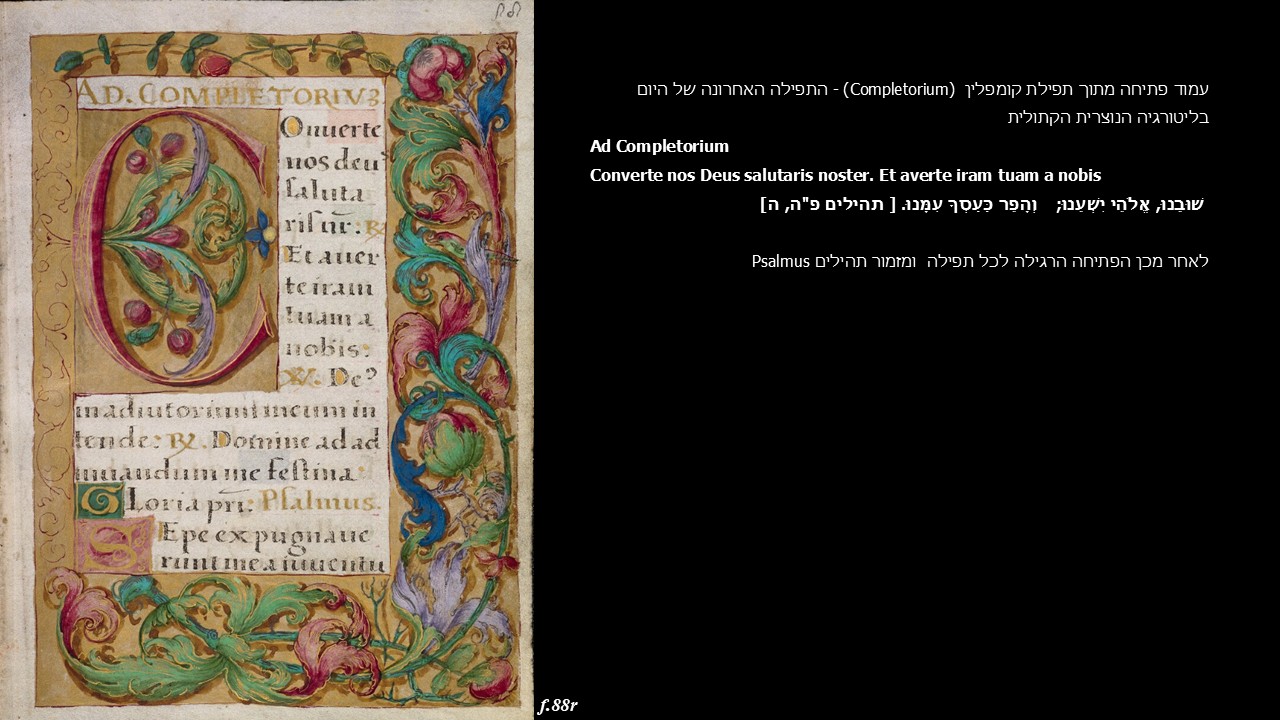 AD. COMPLETORIVȝ.
Onuerte
nos deuˀ
saluta
ris nr̄: ℟
Et auer
te iram
tuam a
nobis:
℣. Deˀ
in adiutorium meum in
tende: ℟. Domine ad ad
iuuandum me festina
Gloria pri: Psalmus.
Sepe expugnaue
runt me a iuuentu
עמוד פתיחה מתוך תפילת קומפלין (Completorium) - התפילה האחרונה של היום
בליטורגיה הנוצרית הקתולית
Ad Completorium
Converte nos Deus salutaris noster. Et averte iram tuam a nobis
שׁוּבֵנוּ, אֱלֹהֵי יִשְׁעֵנוּ; וְהָפֵר כַּעַסְךָ עִמָּנוּ. [ תהילים פ"ה, ה]
לאחר מכן הפתיחה הרגילה לכל תפילה ומזמור תהילים Psalmus
f.88r